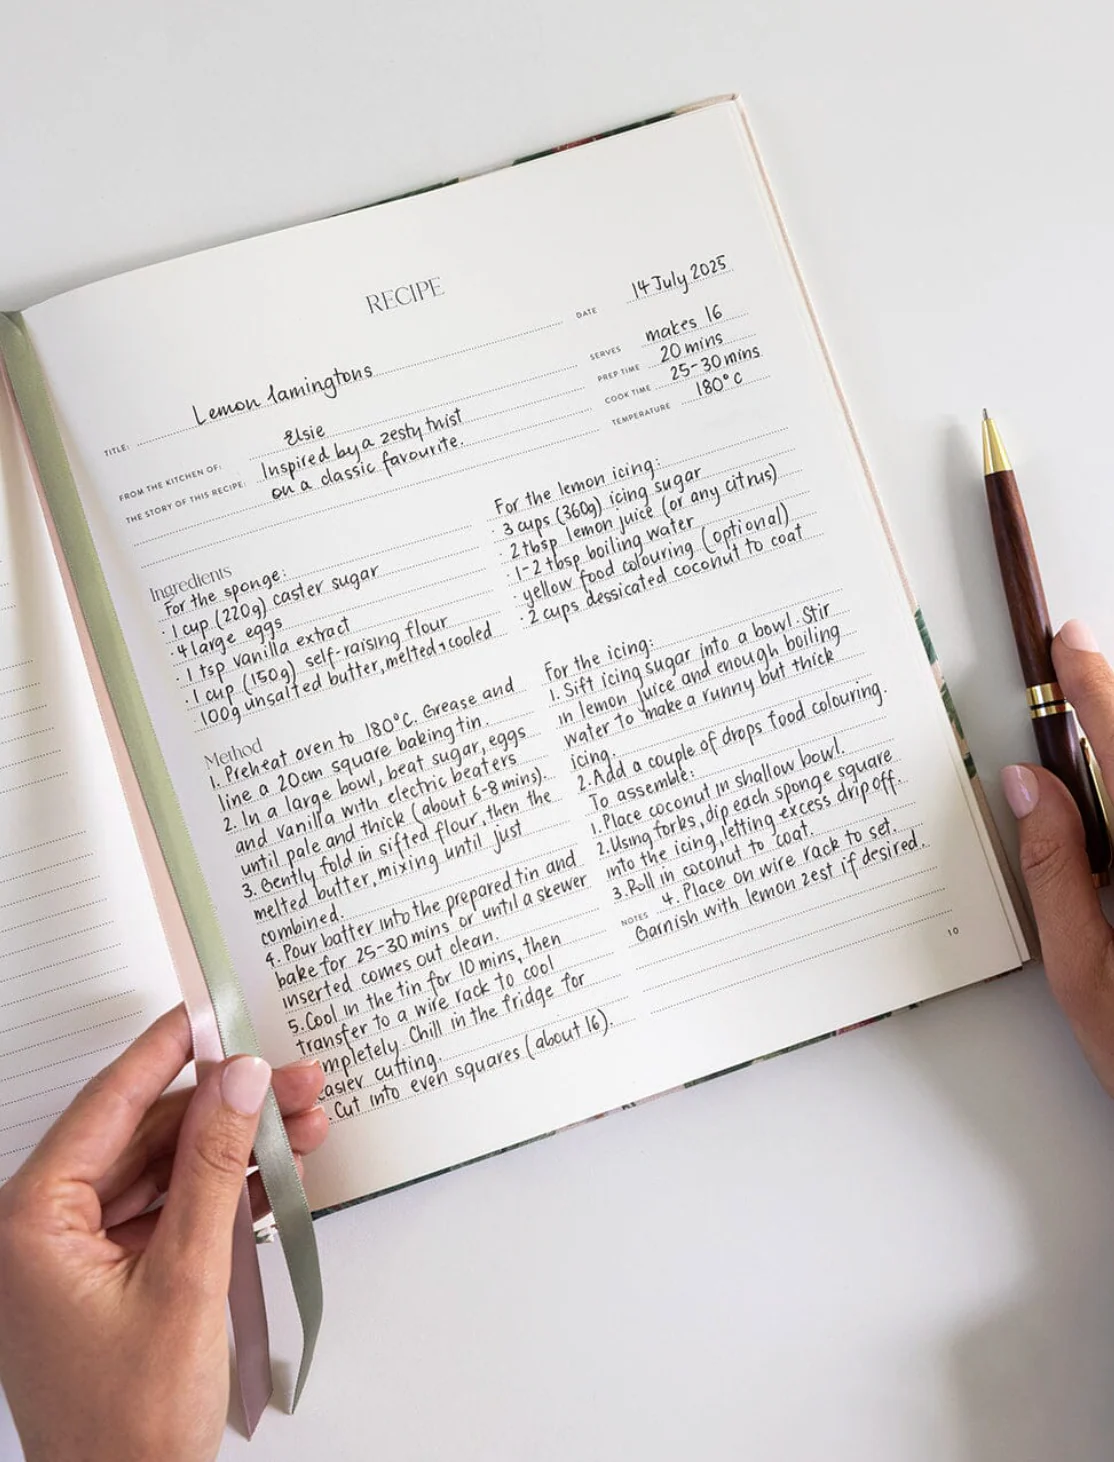 RECIPE
DATE 14 July 2025
TITLE: Lemon lamingtons
SERVES makes 16
PREP TIME 20 mins
COOK TIME 25-30 mins
TEMPERATURE 180°C
FROM THE KITCHEN OF: Elsie
THE STORY OF THIS RECIPE: Inspired by a zesty twist
on a classic favourite.
Ingredients
For the sponge:
· 1 cup (220g) caster sugar
· 4 large eggs
· 1 tsp vanilla extract
· 1 cup (150g) self-raising flour
· 100g unsalted butter, melted + cooled
For the lemon icing:
· 3 cups (360g) icing sugar
· 2 tbsp lemon juice (or any citrus)
· 1-2 tbsp boiling water
· yellow food colouring (optional)
· 2 cups dessicated coconut to coat
Method
1. Preheat oven to 180°C. Grease and
line a 20cm square baking tin.
2. In a large bowl, beat sugar, eggs
and vanilla with electric beaters
until pale and thick (about 6-8 mins).
3. Gently fold in sifted flour, then the
melted butter, mixing until just
combined.
4. Pour batter into the prepared tin and
bake for 25-30 mins or until a skewer
inserted comes out clean.
5. Cool in the tin for 10 mins, then
transfer to a wire rack to cool
mpletely. Chill in the fridge for
easier cutting.
. Cut into even squares (about 16).
For the icing:
1. Sift icing sugar into a bowl. Stir
in lemon juice and enough boiling
water to make a runny but thick
icing.
2. Add a couple of drops food colouring.
To assemble:
1. Place coconut in shallow bowl.
2. Using forks, dip each sponge square
into the icing, letting excess drip off.
3. Roll in coconut to coat.
4. Place on wire rack to set.
NOTES Garnish with lemon zest if desired.
10